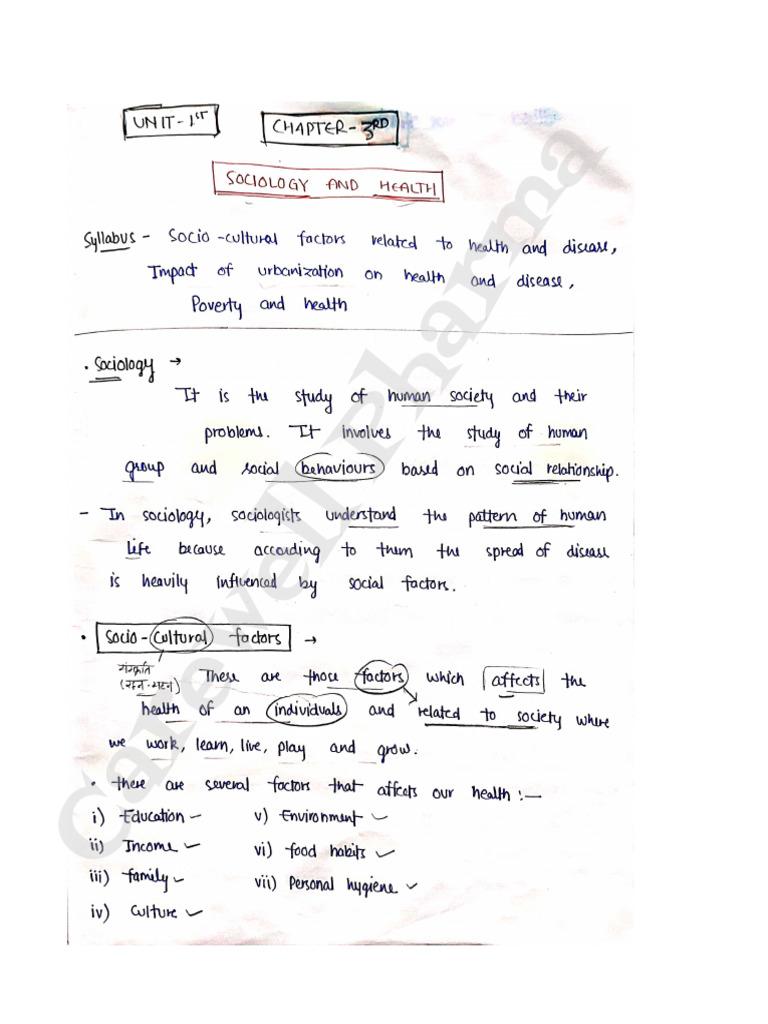 UNIT-1ST
CHAPTER-3RD
SOCIOLOGY AND HEALTH
Syllabus - Socio-cultural factors related to health and disease,
Impact of urbanization on health and disease,
Poverty and health
• Sociology →
It is the study of human society and their
problems. It involves the study of human
group and social behaviours based on social relationship.
- In sociology, sociologists understand the pattern of human
life because according to them the spread of disease
is heavily influenced by social factors.
• Socio-Cultural factors →
संस्कृति
(रहन-सहन) These are those factors which affects the
health of an individuals and related to society where
we work, learn, live, play and grow.
• there are several factors that affects our health :—
i) Education
v) Environment
ii) Income
vi) food habits
iii) family
vii) Personal hygiene
iv) Culture
Carewell Pharma